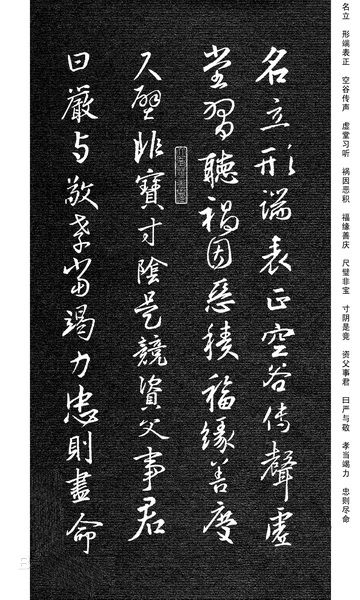 名立形端表正空谷传聲虚
堂習聽禍因惡積福缘善慶
尺璧非寶寸陰是競資父事君
曰嚴与敬孝當竭力忠則盡命
名立 形端表正 空谷传声 虚堂习听 祸因恶积 福缘善庆 尺璧非宝 寸阴是竞 资父事君 曰严与敬 孝当竭力 忠则尽命